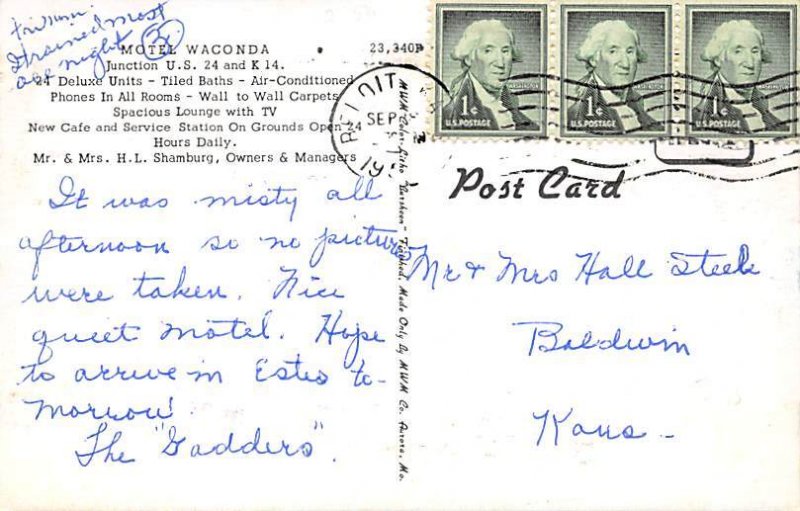 It rained most
all night
MOTEL WACONDA
23,340F
Junction U.S. 24 and K 14.
24 Deluxe Units - Tiled Baths - Air-Conditioned
Phones In All Rooms - Wall to Wall Carpets
Spacious Lounge with TV
New Cafe and Service Station On Grounds Open 24
Hours Daily.
Mr. & Mrs. H.L. Shamburg, Owners & Managers
It was misty all
afternoon so no pictures
were taken. Nice
quiet motel. Hope
to arrive in Estes to-
morrow!
The "Gadders".
MWM Color-Litho Finished, Made Only By MWM Co. Aurora, Mo.
BELOIT
SEP
1¢
WASHINGTON
U.S. POSTAGE
1¢
WASHINGTON
U.S. POSTAGE
1¢
WASHINGTON
U.S. POSTAGE
Post Card
Mr & Mrs Hall Steele
Baldwin
Kans -